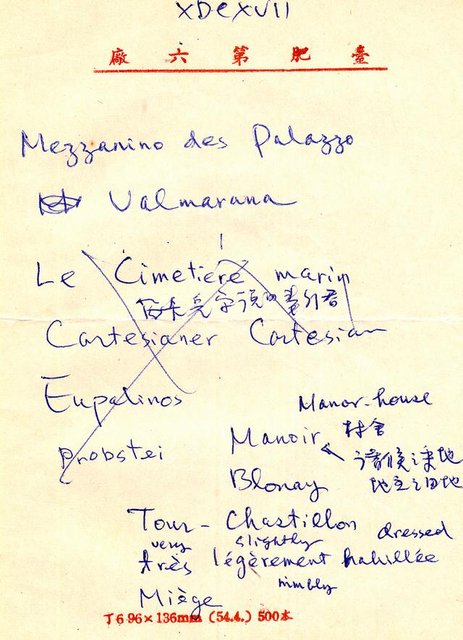 XDCXVII
廠六第肥臺
Mezzanino des Palazzo
Valmarana
Le Cimetière marin
Cartesianer Cartesian
Eupalinos
Probstei
Manor-house
Manoir 村舍
諸侯采地
Blonay 地主之田地
Tour - Chastillon
very slightly dressed
très légèrement habillée
nimbly
Miège
丁6 96×136mm (54.4.) 500本